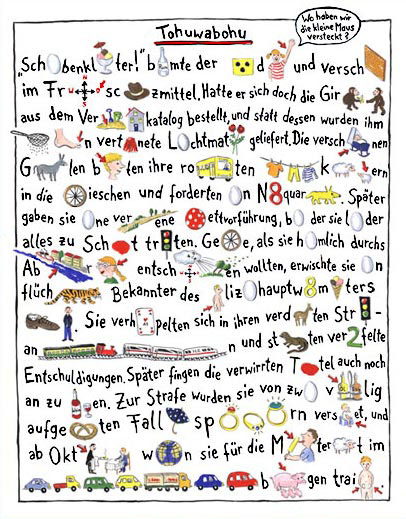 Tohuwabohu
Wo haben wir
die kleine Maus
versteckt?
"Sch benkl ter!" b mte der d und versch
im Fr sc zmittel. Hatte er sich doch die Gir
aus dem Ver katalog bestellt, und statt dessen wurden ihm
n vert nete L chtmat geliefert. Die versch nen
G len b ten ihre ro ten k ern
in die ieschen und forderten n N8quar . Später
gaben sie ne ver ene ettvorführung, b der sie l der
alles zu Sch t tr ten. Ge e, als sie h mlich durchs
Ab entsch en wollten, erwischte sie n
flüch Bekannter des liz hauptw8m ters
. Sie verh pelten sich in ihren verd ten Str -
an n und st ten ver2felte
Entschuldigungen. Später fingen die verwirrten T tel auch noch
an zu en. Zur Strafe wurden sie von zw v lig
aufge ten Fall sp rn vers et, und
ab Okt w n sie für die M fer t im
b gen trai